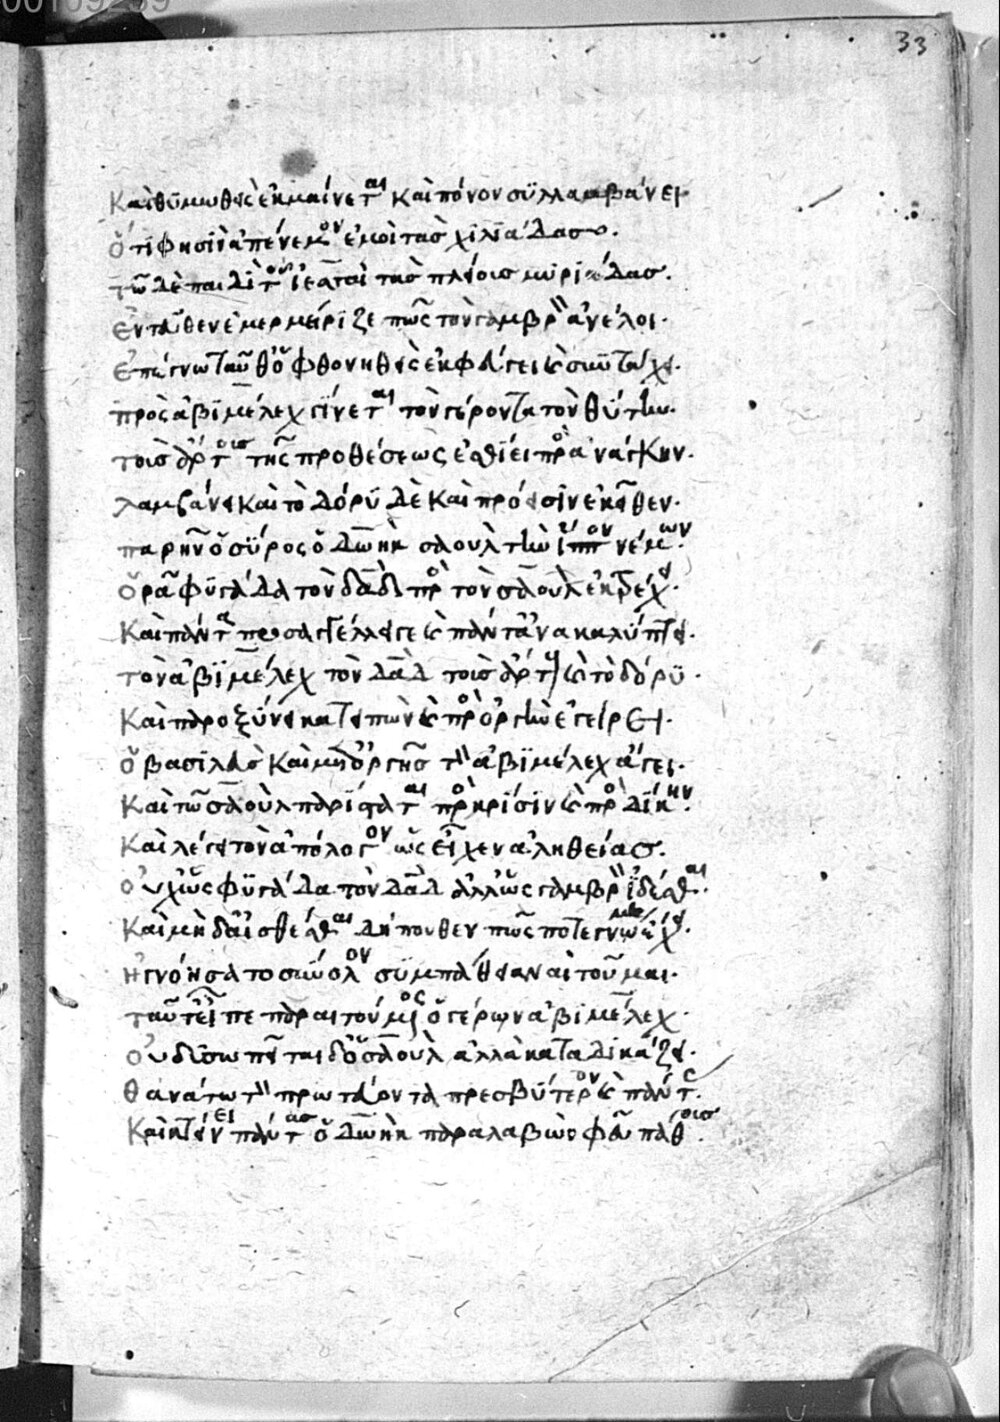 33
Καὶ θυμωθεὶς ἐκμαίνεται καὶ πόνον συλλαμβάνει
ὅτι φησὶν ἀπένεμον ἐμοὶ τὰς χιλιάδας.
τῶ δὲ παιδὶ τοῦ ἰεσσαὶ τὰς πλείους μυριάδας.
ἐντεῦθεν ἐμερμήριζε πῶς τὸν γαμβρὸν ἀνέλοι.
ἐπέγνω ταῦθ' ὁ φθονηθεὶς ἐκφεύγει καὶ συντάχει.
πρὸς ἀβιμέλεχ γίνεται τὸν γέροντα τὸν θύτην.
τοῖς ἄρτοις τῆς προθέσεως ἐσθίει πρὸς ἀνάγκην.
λαμβάνει καὶ τὸ δόρυ δὲ καὶ πρόσεισιν ἐκεῖθεν.
παρῆν ὁ σύρος ὁ δωὴκ σαοὺλ τὴν ἵππον νέμων.
ὁρᾶ φυγάδα τὸν δαδ πρὸς τὸν σαοὺλ ἐκτρέχει.
Καὶ πάντα προσαγγέλλει γε καὶ πάντα ἀνακαλύπτει.
τὸν ἀβιμέλεχ τὸν δαδ τοὺς ἄρτους καὶ τὸ δόρυ.
Καὶ παροξύνει κατειπὼν καὶ πρὸς ὀργὴν ἐγείρει.
ὁ βασιλεὺς καὶ μετ' ὀργῆς τὸν ἀβιμέλεχ ἄγει.
Καὶ τῶ σαοὺλ παρίσταται πρὸς κρίσιν καὶ πρὸς δίκην.
Καὶ λέγει τὸν ἀπόλογον ὡς εἶχεν ἀληθείας.
οὐχ ὡς φυγάδα τὸν δαδ ἀλλ' ὡς γαμβρὸν ἰδέσθαι.
Καὶ μὴ δ' αἰσθέσθαι δήπουθεν πῶς ποτε γνώμης εἶχε.
ἠγνόησα τὸ σύνολον συμπάθειαν αἰτοῦμαι.
ταῦτ' εἶπε παραιτούμενος ὁ γέρων ἀβιμέλεχ.
οὐ δυσωπεῖται δ' ὁ σαοὺλ ἀλλὰ καταδικάζει.
θανάτω τὸν πρωτεύοντα πρεσβύτερον καὶ πάντας.
Καὶ κτείνει πάντας ὁ δωὴκ παραλαβὼν